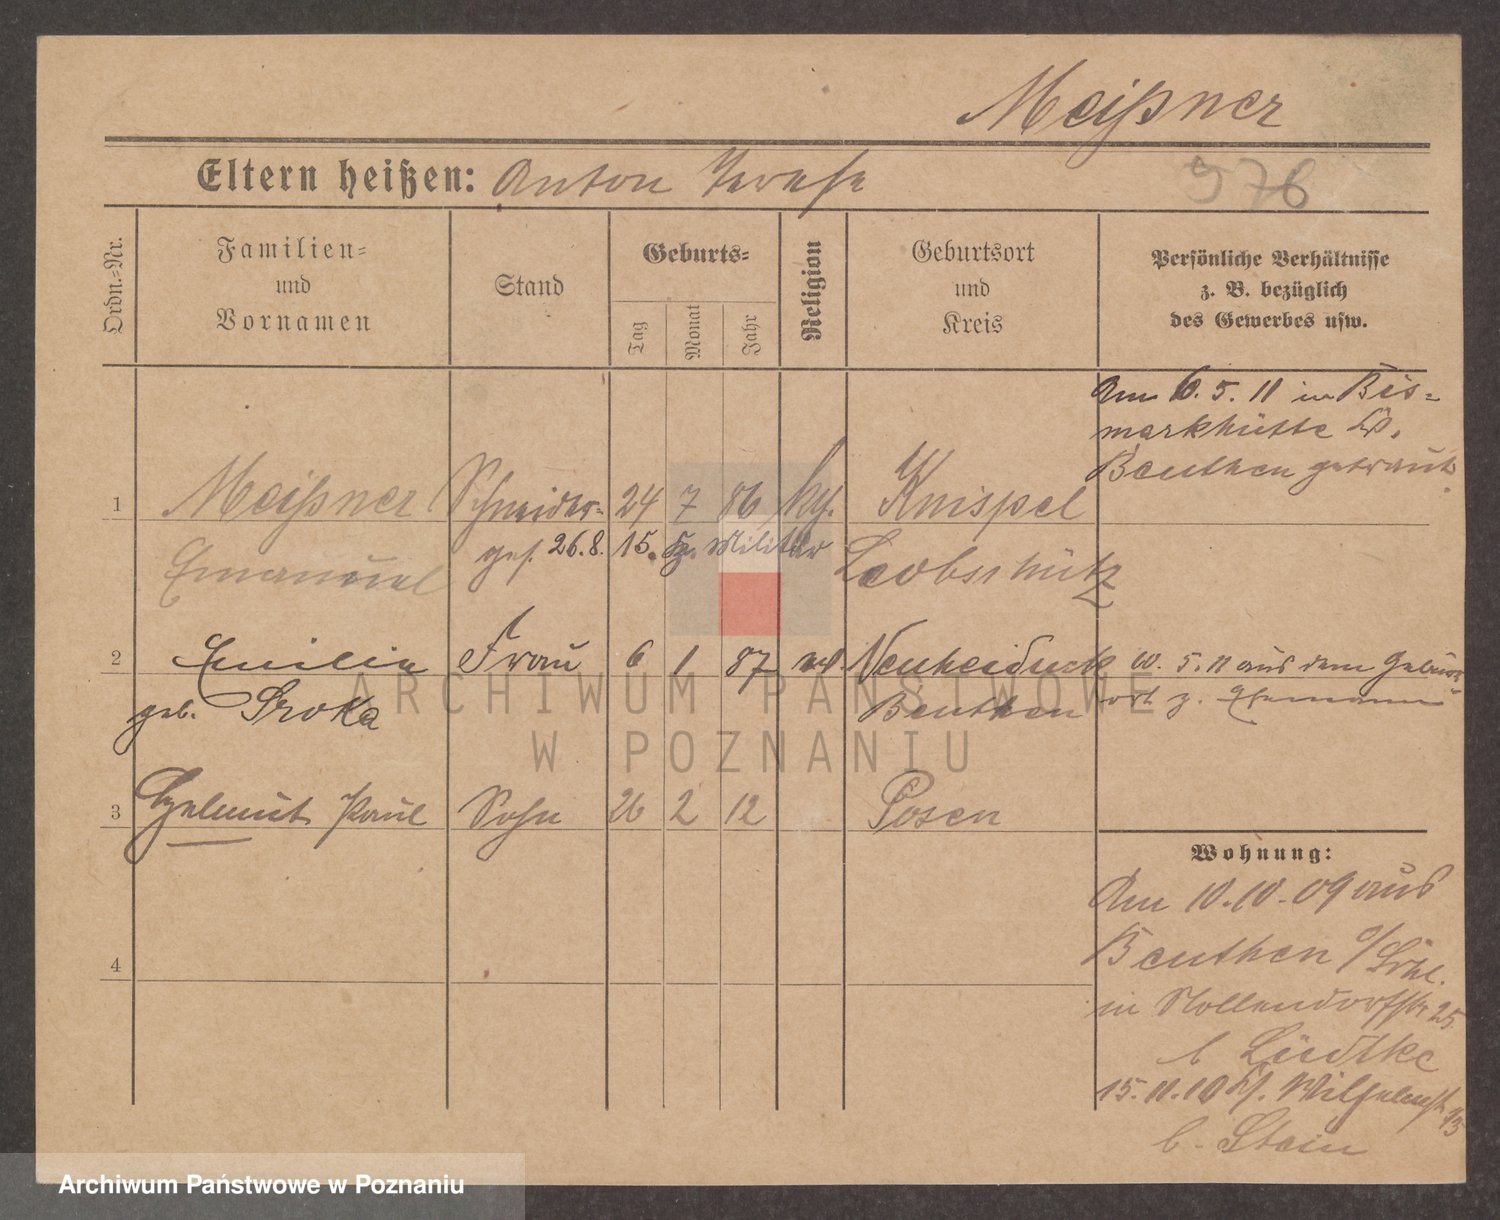 Meißner
Eltern heißen: Anton Therese
976
Ordn.=Nr.
Familien=
und
Vornamen
Stand
Geburts=
Tag
Monat
Jahr
Religion
Geburtsort
und
Kreis
Persönliche Verhältnisse
z. B. bezüglich
des Gewerbes usw.
Am 6. 5. 11 in Bis=
markhütte Kr.
Beuthen getraut
1 Meißner Schneider= 24 7 86 Knispel
Emanuel 26.8. 15. z. Militär Leobschütz
2 Emilie Frau 6 1 87 Neuheiduck 10. 5. 11 aus dem Geburts=
geb. Sroka Beuthen ort z. Ehemann
3 Helmut Paul Sohn 26 2 12 Posen
4
Wohnung:
Am 10.10.09 aus
Beuthen o/Schl.
in Nollendorfstr 25
b Lüdtke
15.11.10 Wilhelmst
b. Stein
ARCHIWUM PAŃSTWOWE
W POZNANIU
Archiwum Państwowe w Poznaniu